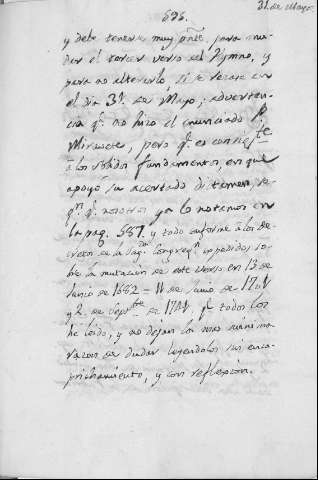 31. de Mayo.
595.
y debe tenerse muy pnte. para mu-
dar el tercer verso del Hymno, y
para no alterarlo, si se rezare en
el dia 31. de Mayo; adverten-
cia qe. no hizo el enunciado P.
Miravete, pero qe. es consigte.
à los solidos fundamentos, en que
apoyó su acertado dictamen, se-
gn. qe. nosotros ya lo notamos en
la pag. 587. y todo conforme à los de-
cretos de la Sag. Congregn. expedidos, so-
bre la mutacion de este verso en 13 de
Junio de 1682 = 11 de Junio de 1701
y 2. de Septbre. de 1741, qe. todos los
he leido, y no dejan la mas minima
razon de dudar leyendolos sin enca-
prichamiento, y con reflexion.